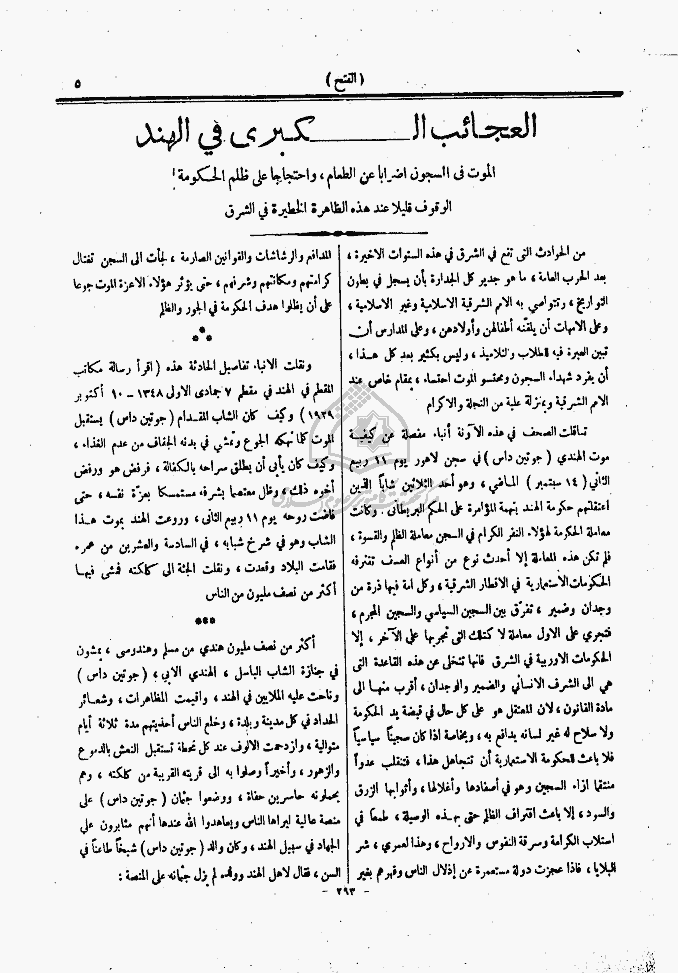 ٥
( الفتح )
العجائب الـكبرى في الهند
الموت في السجون اضرابا عن الطعام ، واحتجاجا على ظلم الحكومة !
الوقوف قليلا عند هذه الظاهرة الخطيرة في الشرق
من الحوادث التي تقع في الشرق في هذه السنوات الاخيرة ،
بعد الحرب العامة ، ما هو جدير كل الجدارة بأن يسجل في بطون
التواريخ ، وتتواصى به الامم الشرقية الاسلامية وغير الاسلامية ،
وعلى الامهات أن يلقنه أطفالهن وأولادهن ، وعلى المدارس أن
تبين العبرة فيه للطلاب والتلاميذ ، وليس بكثير بعد كل هذا ،
أن يفرد شهداء السجون ومحتسو الموت احتساء ، بمقام خاص عند
الامم الشرقية وبمنزلة علية من التجلة والاكرام
تساقلت الصحف في هذه الآونة أنباء مفصلة عن كيفية
موت الهندي ( جوتين داس ) في سجن لاهور يوم ١١ ربيع
الثاني ( ١٤ سبتمبر ) الماضي ، وهو أحد الثلاثين شاباً الذين
اعتقلتهم حكومة الهند بتهمة المؤامرة على الحكم البريطاني . وكانت
معاملة الحكومة لهؤلاء النفر الكرام في السجن معاملة الظلم والقسوة ،
فلم تكن هذه المعاملة إلا أحدث نوع من أنواع العسف تقترفه
الحكومات الاستعمارية في الاقطار الشرقية ، وكل امة فيها ذرة من
وجدان وضمير ، تفرّق بين السجين السياسي والسجين المجرم ،
فتجري على الاول معاملة لا كتلك التي تجريها على الآخر ، إلا
الحكومات الاوربية في الشرق فانها تتخلى عن هذه القاعدة التي
هي الى الشرف الانساني والضمير والوجدان ، أقرب منها الى
مادة القانون ، لان المعتقل هو على كل حال في قبضة يد الحكومة
ولا سلاح له غير لسانه يدافع به ، وبخاصة اذا كان سجيناً سياسياً
فلا باعث للحكومة الاستعمارية أن تتجاهل هذا ، فتنقلب عدواً
منتقما ازاء السجين وهو في أصفادها وأغلالها ، وأثوابها الزرق
والسود ، إلا باعث اقتراف الظلم حتى بهذه الوسيلة ، طمعا في
استلاب الكرامة وسرقة النفوس والارواح ، وهذا لعمري ، شر
البلايا ، فاذا عجزت دولة مستعمرة عن إذلال الناس وقهرهم بغير
المدافع والرشاشات والقوانين الصارمة ، لجأت الى السجن تغتال
كرامتهم ومكانتهم وشرفهم ، حتى يؤثر هؤلاء الاعزة الموت جوعا
على أن يظلوا هدف الحكومة في الجور والظلم
***
ونقلت الانباء تفاصيل الحادثة هذه ( اقرأ رسالة مكاتب
المقطم في الهند في مقطم ٧ جمادى الاولى ١٣٤٨ — ١٠ أكتوبر
١٩٢٩ ) وكيف كان الشاب المقدام ( جوتين داس ) يستقبل
الموت كما نهكه الجوع وتمشي في بدنه الجفاف من عدم الغذاء ،
وكيف كان يأبى أن يطلق سراحه بالكفالة ، فرفض هو ورفض
أخوه ذلك ، وظل معتصما بشرفه مستمسكا بعزّة نفسه ، حتى
فاضت روحه يوم ١١ ربيع الثاني ، وروعت الهند بموت هذا
الشاب وهو في شرخ شبابه ، في السادسة والعشرين من عمره
فقامت البلاد وقعدت ، ونقلت الجثة الى كلكته فمشى فيها
أكثر من نصف مليون من الناس
***
أكثر من نصف مليون هندي من مسلم وهندوسي ، يمشون
في جنازة الشاب الباسل ، الهندي الابي ، ( جوتين داس )
وناحت عليه الملايين في الهند ، واقيمت المظاهرات ، وشعائر
الحداد في كل مدينة وبلدة ، وخلع الناس أحذيتهم مدة ثلاثة أيام
متوالية ، وازدحمت الالوف عند كل محطة تستقبل النعش بالدموع
والزهور ، وأخيراً وصلوا به الى قريته القريبة من كلكته ، وهم
يحملونه حاسرين حفاة ، ووضعوا جثمان ( جوتين داس ) على
منصة عالية ليراها الناس ويعاهدوا الله عندها أنهم مثابرون على
الجهاد في سبيل الهند ، وكان والد ( جوتين داس ) شيخاً طاعناً في
السن ، فقال لاهل الهند وولده لم يزل جثمانه على المنصة :
— ٢٩٣ —